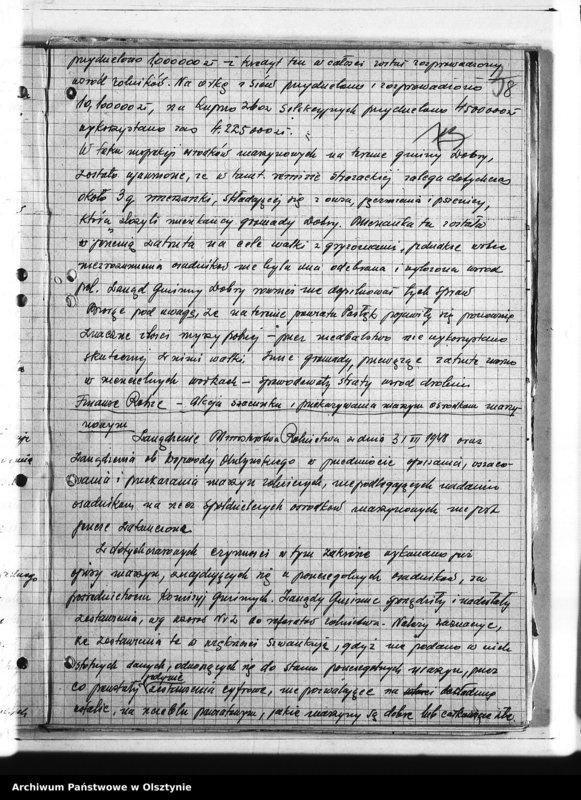 przydzielono 1,000000 zł i kredyt ten w całości został rozprowadzony
wśród rolników. Na orkę i siew przydzielono i rozprowadzono
10,100000 zł, na kupno zbóż selekcyjnych przydzielono 4500000 zł
wykorzystano zaś 4.225000 zł.
78
W toku inspekcji ośrodków maszynowych na terenie gminy Dobry,
zostało ujawnione, że w tamt. remizie strażackiej zalega dotychczas
około 3 q mieszanki, składającej się z owsa, jęczmienia i pszenicy,
którą złożyli mieszkańcy gromady Dobry. Mieszanka ta została
w jesieni zatruta na cele walki z gryzoniami, jednakże wobec
niezrozumienia osadników nie była ona odebrana i wyłożona wśród
pól. Zarząd Gminny Dobry również nie dopilnował tych spraw
Biorąc pod uwagę, że na terenie powiatu Pasłęk pojawiły się ponownie
znaczne ilości myszy polnej - przez niedbalstwo nie wykorzystano
skutecznej z nimi walki. Inne gromady, przewożąc zatrute ziarno
w nieszczelnych workach - spowodowały straty wśród drobiu
Finanse Rolne - Akcja szacunku i przekazywania maszyn ośrodkom maszy-
nowym
Zarządzenie Ministerstwa Rolnictwa z dnia 31 III 1948 oraz
Zarządzenia ob Wojewody Olsztyńskiego w przedmiocie spisania, oszaco-
wania i przekazania maszyn rolniczych, niepodlegających nadaniu
osadnikom na rzecz spółdzielczych ośrodków maszynowych nie jest
jeszcze zakończona
Z dotychczasowych czynności w tym zakresie wykonano już
spisy maszyn, znajdujących się u poszczególnych osadników, za
pośrednictwem Komisji Gminnych. Zarządy Gminne sporządziły i nadesłały
zestawienia, wg wzoru Nr 2 do referatu rolnictwa. Należy zaznaczyć,
że zestawienia te w większości szwankują, gdyż nie podano w nich
istotnych danych, odnoszących się do stanu poszczególnych maszyn, przez
co powstały jedynie zestawienia cyfrowe, nie pozwalające na dokładne
ustalenie, na szczeblu powiatowym, jakie maszyny są dobre lub całkowicie złe
Archiwum Państwowe w Olsztynie